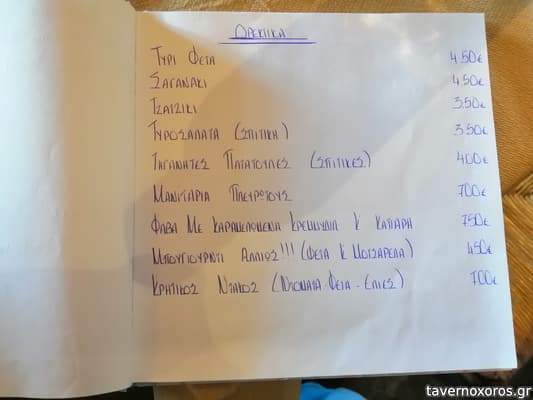 ΟΡΕΚΤΙΚΑ
ΤΥΡΙ ΦΕΤΑ 4.50€
ΣΑΓΑΝΑΚΙ 4.50€
ΤΖΑΤΖΙΚΙ 3.50€
ΤΥΡΟΣΑΛΑΤΑ (ΣΠΙΤΙΚΗ) 3.50€
ΤΗΓΑΝΗΤΕΣ ΠΑΤΑΤΟΥΛΕΣ (ΣΠΙΤΙΚΕΣ) 4.00€
ΜΑΝΙΤΑΡΙΑ ΠΛΕΥΡΩΤΟΥΣ 7.00€
ΦΑΒΑ ΜΕ ΚΑΡΑΜΕΛΟΜΕΝΑ ΚΡΕΜΜΥΔΙΑ Κ ΚΑΠΑΡΗ 7.50€
ΜΠΟΥΓΙΟΥΡΝΤΙ ΑΛΛΙΩΣ!!! (ΦΕΤΑ Κ ΜΟΤΣΑΡΕΛΑ) 4.50€
ΚΡΗΤΙΚΟΣ ΝΤΑΚΟΣ (ΝΤΟΜΑΤΑ-ΦΕΤΑ-ΕΛΙΕΣ) 7.00€
tavernoxoros.gr